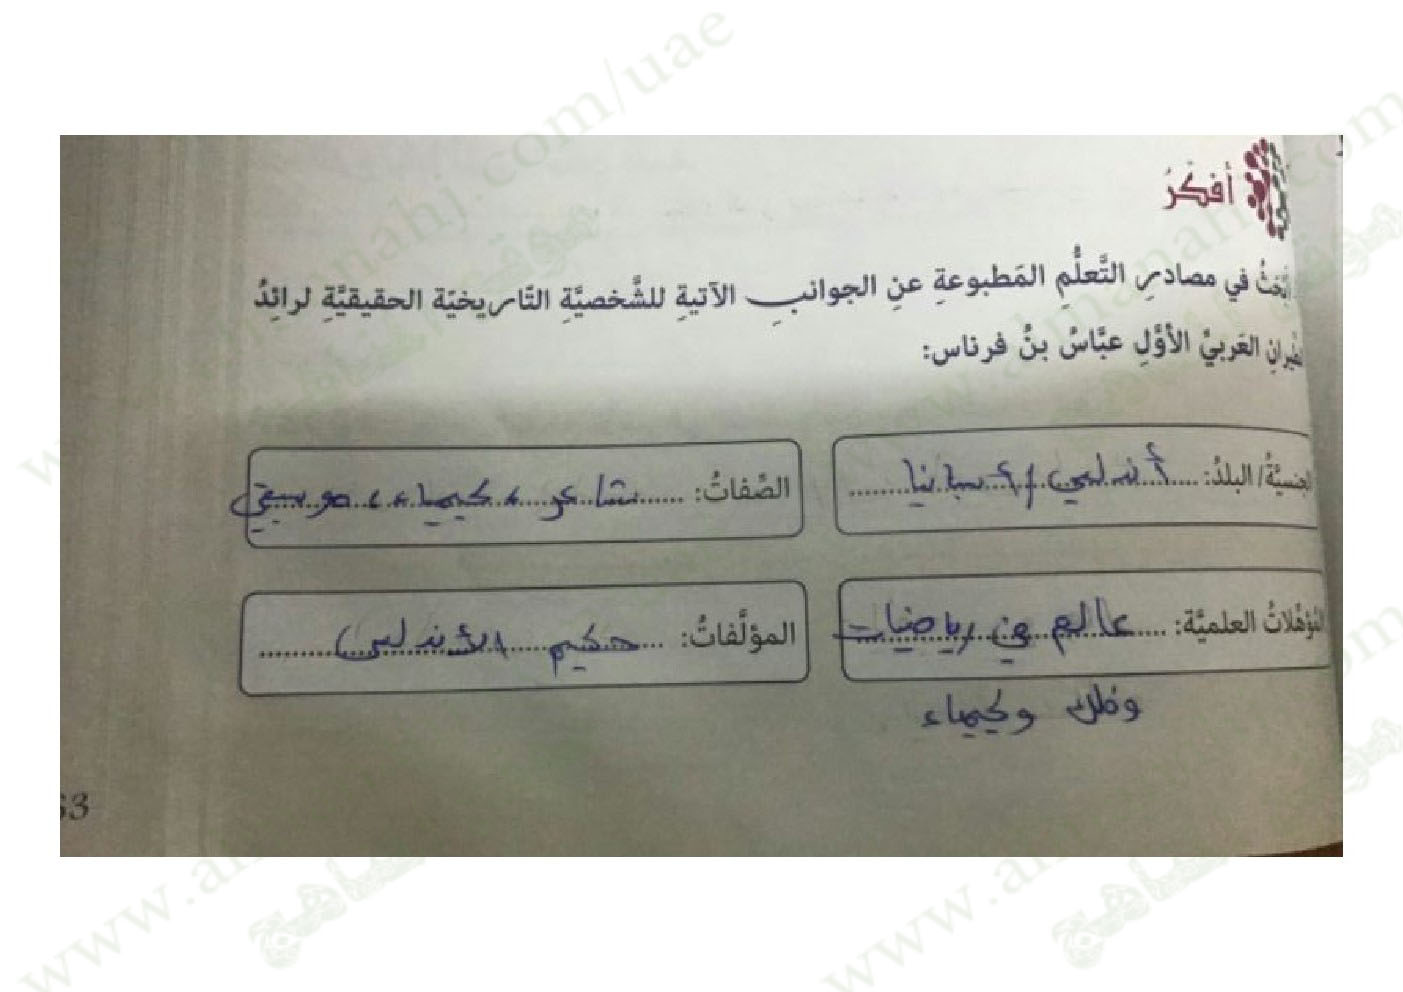 أفكّرُ
أبحثُ في مصادرِ التَّعلُّمِ المَطبوعةِ عنِ الجوانبِ الآتيةِ للشَّخصيَّةِ التّاريخيّة الحقيقيَّةِ لرائِدُ
الطَّيرانِ العَربيِّ الأوَّلِ عبَّاسُ بنُ فرناس:
الجنسيَّةُ/ البلدُ: أندلسي / أسبانيا
الصِّفاتُ: شاعر، كيمياء، موسيقي
المُؤهِّلاتُ العلميَّة: عالم في رياضيات
وفلك وكيمياء
المؤلَّفاتُ: حكيم الأندلس
63
www.almanahj.com/uae
موقع المناهج